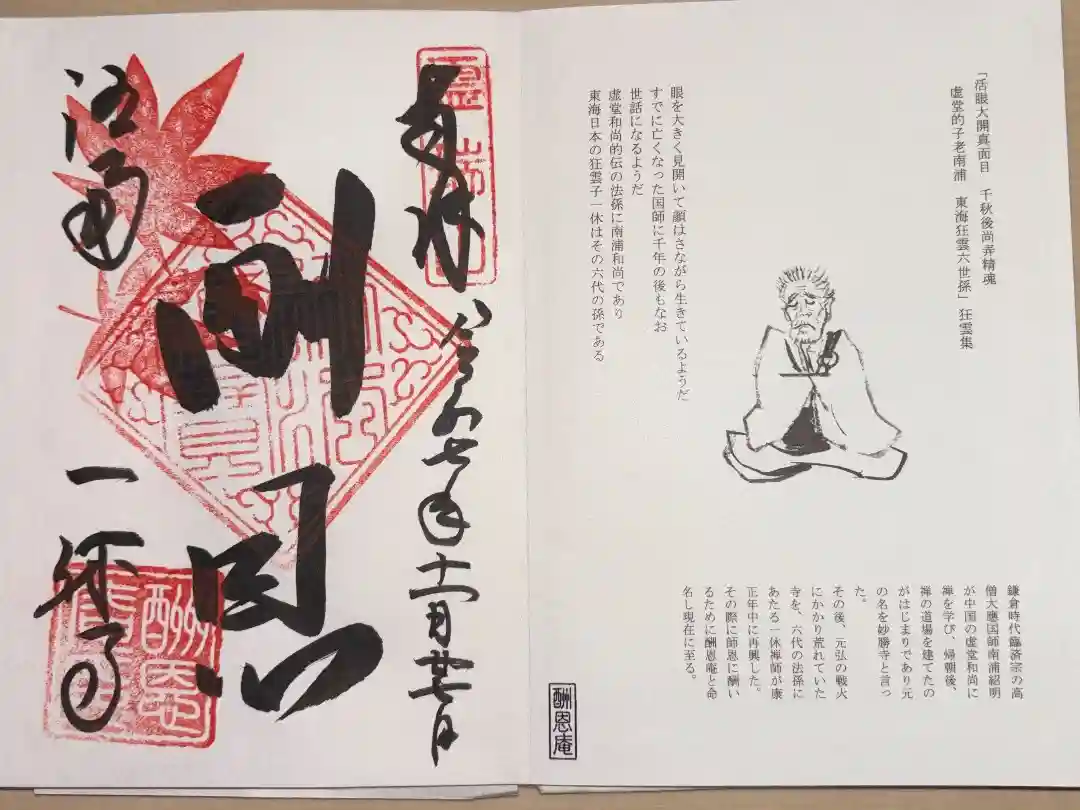 「活眼大開真面目　千秋後尚弄精魂
虚堂的子老南浦　東海狂雲六世孫」狂雲集
眼を大きく見開いて顔はさながら生きているようだ
すでに亡くなった国師に千年の後もなお
世話になるようだ
虚堂和尚的伝の法孫に南浦和尚であり
東海日本の狂雲子一休はその六代の孫である
鎌倉時代臨済宗の高
僧大應国師南浦紹明
が中国の虚堂和尚に
禅を学び、帰朝後、
禅の道場を建てたの
がはじまりであり元
の名を妙勝寺と言っ
た。
その後、元弘の戦火
にかかり荒れていた
寺を、六代の法孫に
あたる一休禅師が康
正年中に再興した。
その際に師恩に酬い
るために酬恩庵と命
名し現在に至る。
酬恩庵
奉拝
令和七年十一月廿七日
酬恩
洛南
一休寺